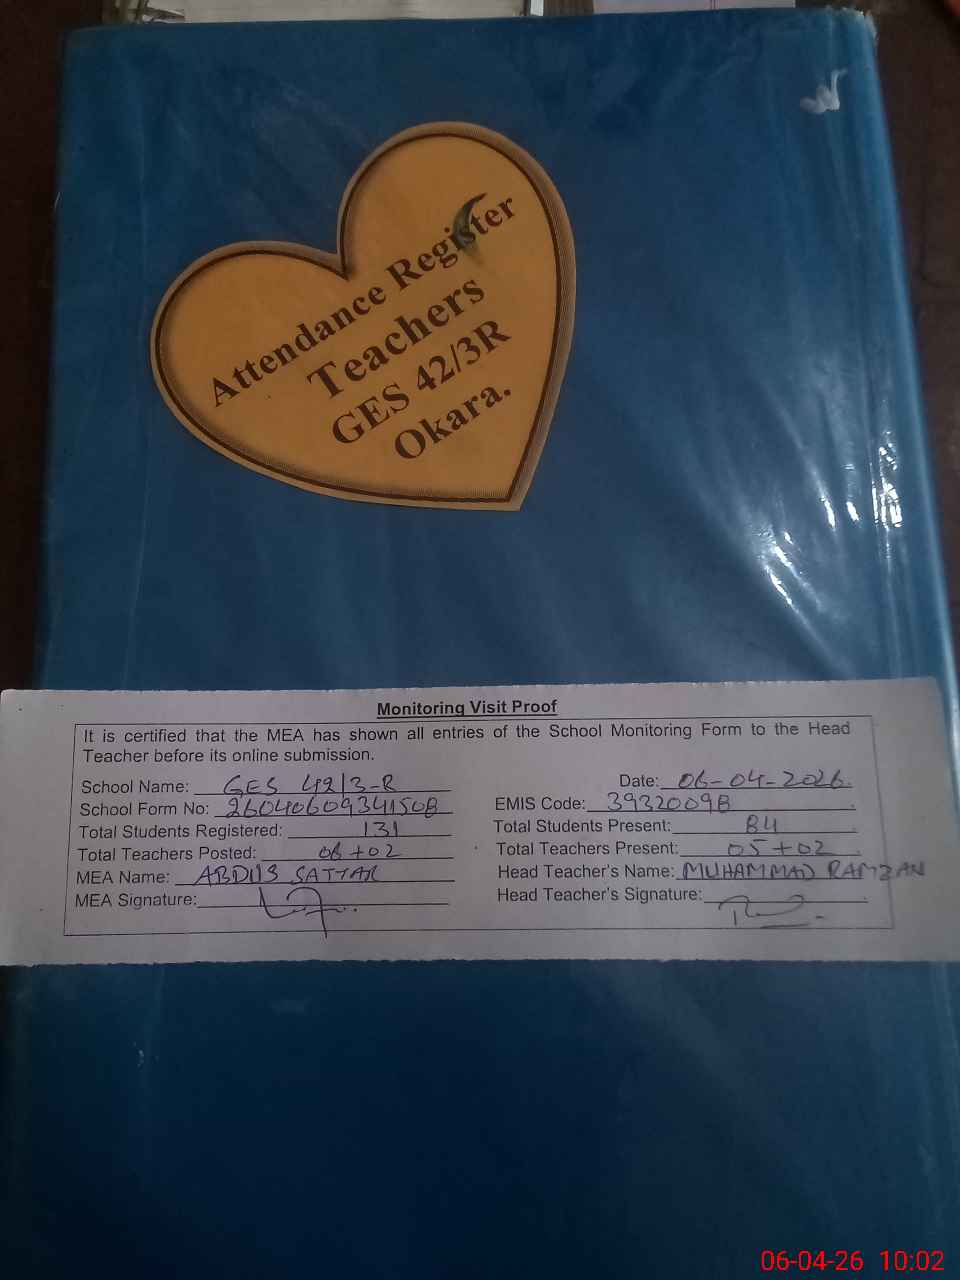 Attendance Register
Teachers
GES 42/3R
Okara.
Monitoring Visit Proof
It is certified that the MEA has shown all entries of the School Monitoring Form to the Head
Teacher before its online submission.
School Name: GES 42/3-R Date: 06-04-2026.
School Form No: EMIS Code: 39320098
Total Students Registered: 131 Total Students Present: 84
Total Teachers Posted: 06+02 Total Teachers Present: 05+02
MEA Name: SATTAR Head Teacher's Name: MUHAMMAD RAMZAN
MEA Signature: Head Teacher's Signature:
06-04-26 10:02